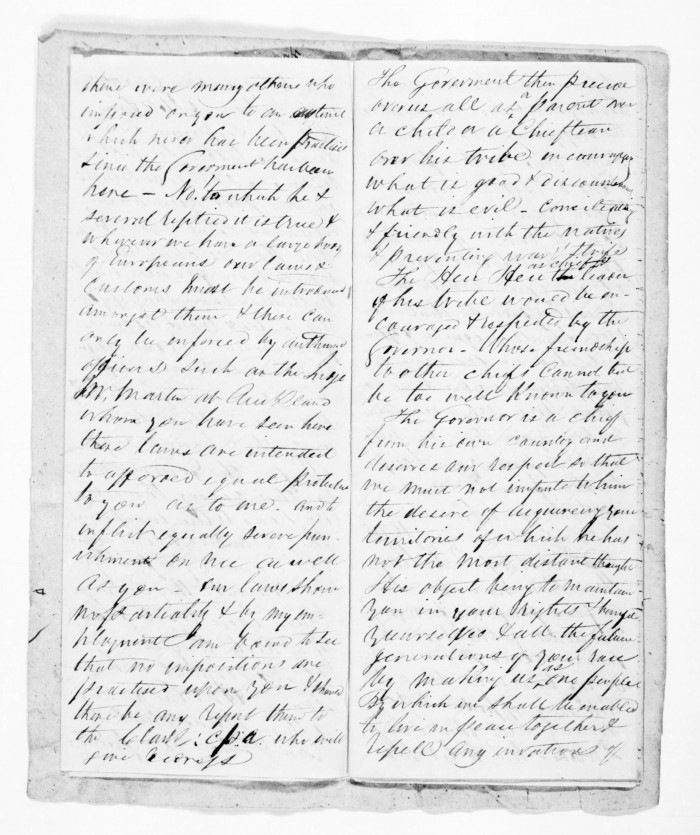 there were many others who
imposed on you to an extent
which never has been practised
since the Goverment has been
here – No. to which he &
several replied it is true &
wherever we have a large body
of Europeans our laws &
customs must be introduced
amongst them & these can
only be enforced by
officers such as the
Mr. Martin at Auckland
whom you have seen here
these laws are intended
to afforded equal protection
to you as to me. and to
inflict equally severe pun-
ishment on me as well
as you – our laws show
no partiality & by my em-
ployment I am bound to see
that no impositions are
practised upon you & should
there be any report them to
the who will
give
The Goverment then preside
over us all as a parent over
a child or a Chieftean
over his tribe encourages
what is good & discountenancing
what is evil – conciliating
& friendly with the natives
& preventing war & strife
The Heu Heu as chief & leader
of his tribe would be en-
couraged & respected by the
Governor – Whose friendship
to other chiefs cannot but
be too well known to you
The Governor is a chief
from his own country and
deserves our respect so that
we must not impute to him
the desire of acquireing your
territories of which he has
not the most distant thought
His object being to maintain
you in your rights & benefit
yourselves & all the future
generations of your race
by making us as one people
By which we shall be enabled
to live in peace together &
repell any invations of